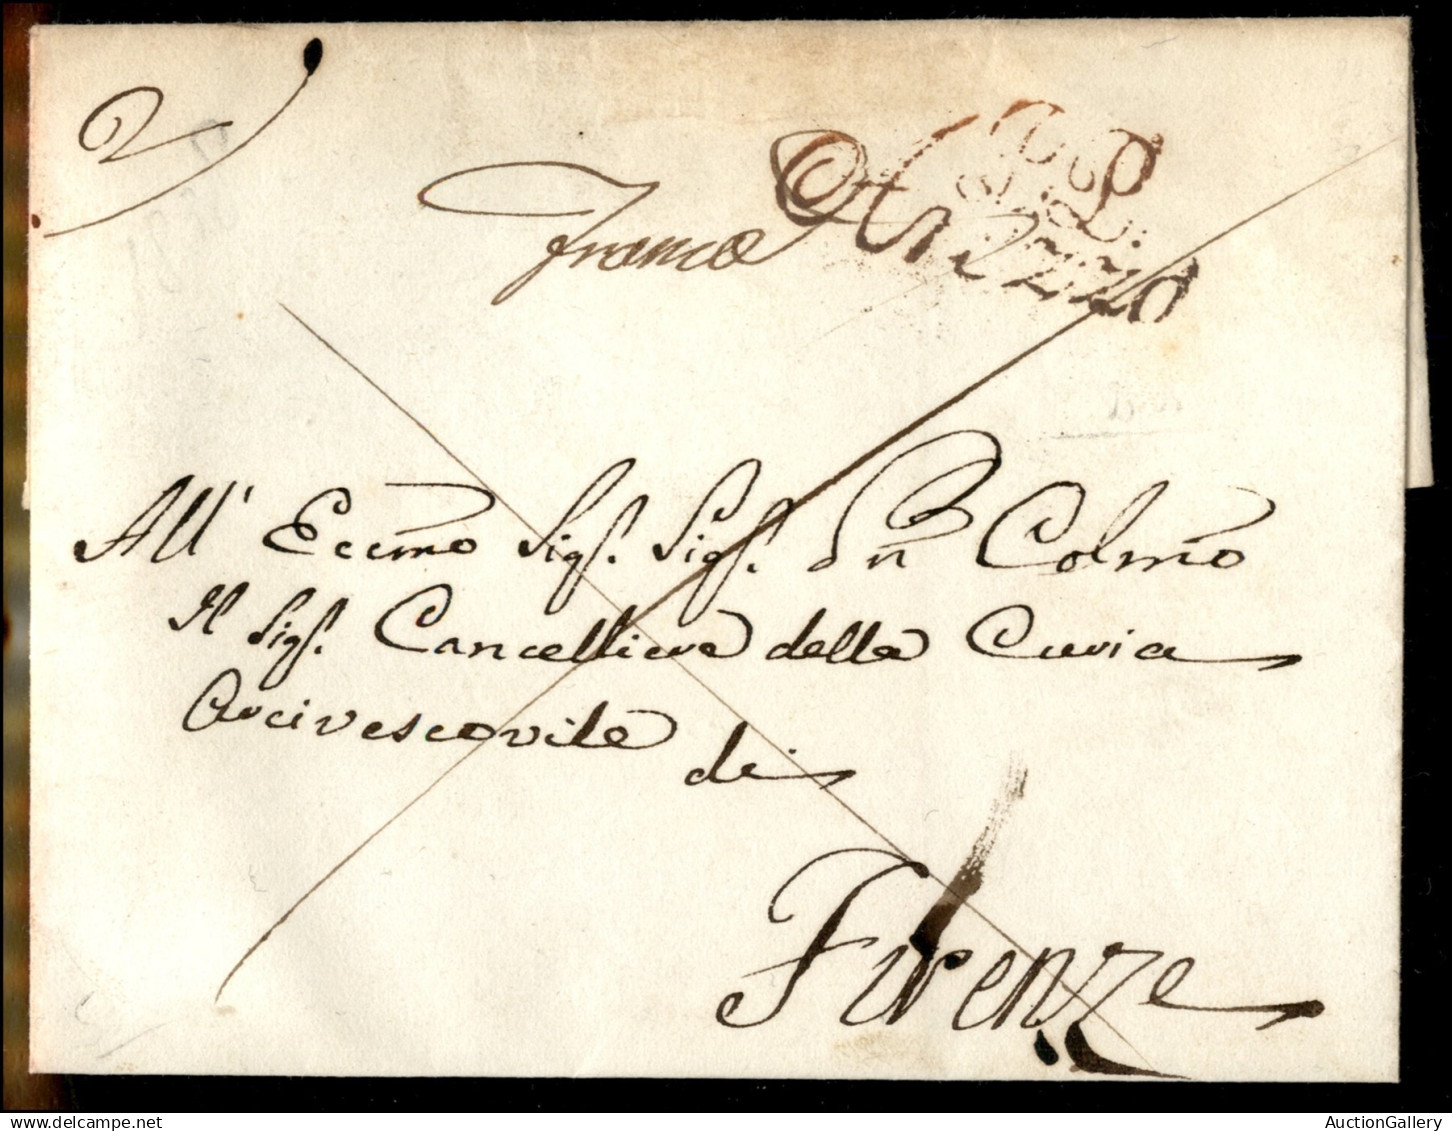 2
P.P.
Arezzo
franca
All' Eccmo Sigr. Sigr. Pn Colmo
Il Sigr. Cancelliere della Curia
Arcivescovile di
Firenze
delcampe.net
AuctionGallery